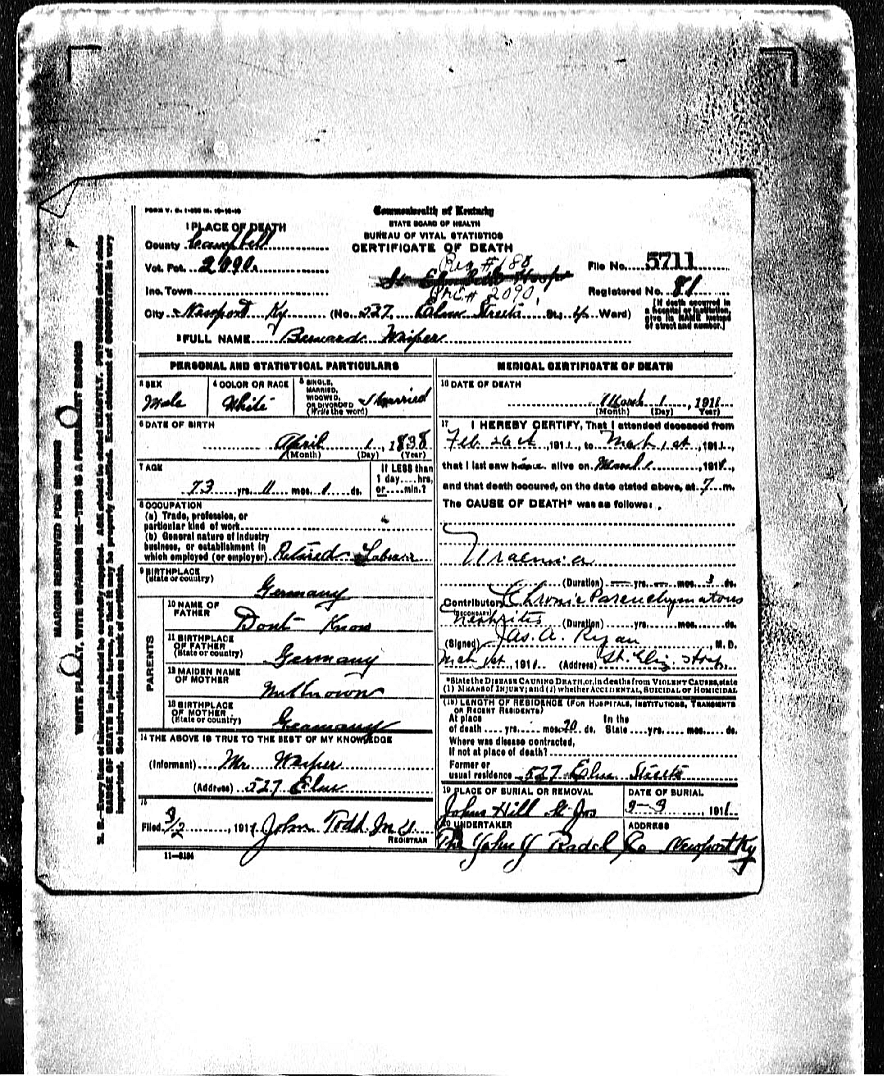 FORM V. S. 1
Commonwealth of Kentucky
STATE BOARD OF HEALTH
BUREAU OF VITAL STATISTICS
CERTIFICATE OF DEATH
1 PLACE OF DEATH
County Campbell
Vot. Pct. 2090
Inc. Town
City Newport Ky (No. 527 Elm Street St., Ward)
Reg # 188
St Elizabeth Hosp
2090
File No. 5711
Registered No. 81
[If death occurred in a hospital or institution, give its NAME instead of street and number.]
2 FULL NAME Bernard Wasper
PERSONAL AND STATISTICAL PARTICULARS
3 SEX Male
4 COLOR OR RACE White
5 SINGLE, MARRIED, WIDOWED, OR DIVORCED (Write the word) Married
6 DATE OF BIRTH
April 1, 1838
(Month) (Day) (Year)
7 AGE
73 yrs. 11 mos. ds.
If LESS than 1 day....hrs. or....min.?
8 OCCUPATION
(a) Trade, profession, or particular kind of work
(b) General nature of industry business, or establishment in which employed (or employer) Retired Laborer
9 BIRTHPLACE (State or country)
Germany
PARENTS
10 NAME OF FATHER Dont Know
11 BIRTHPLACE OF FATHER (State or country) Germany
12 MAIDEN NAME OF MOTHER Unknown
13 BIRTHPLACE OF MOTHER (State or country) Germany
14 THE ABOVE IS TRUE TO THE BEST OF MY KNOWLEDGE
(Informant) Mr. Wasper
(Address) 527 Elm
15
Filed 3/2, 1911 John Todd M D
REGISTRAR
11-5184
MEDICAL CERTIFICATE OF DEATH
16 DATE OF DEATH
March 1, 1911
(Month) (Day) (Year)
17 I HEREBY CERTIFY, That I attended deceased from
Feb 26th, 1911, to Mch 1st, 1911,
that I last saw him alive on March 1, 1911,
and that death occured, on the date stated above, at 7 m.
The CAUSE OF DEATH* was as follows:
Uraemia
(Duration) yrs. mos. 3 ds.
Contributory Chronic Parenchymatous
(SECONDARY) Nephritis (Duration) yrs. mos. ds.
(Signed) Jas. A. Ryan, M. D.
Mch 1st, 1911 (Address) St. Eliz Hosp
*State the DISEASE CAUSING DEATH, or, in deaths from VIOLENT CAUSES, state (1) MEANS OF INJURY; and (2) whether ACCIDENTAL, SUICIDAL OR HOMICIDAL
(18) LENGTH OF RESIDENCE (FOR HOSPITALS, INSTITUTIONS, TRANSIENTS OR RECENT RESIDENTS)
At place of death yrs. mos. 20 ds. In the State yrs. mos. ds.
Where was disease contracted, if not at place of death?
Former or usual residence 527 Elm Street
19 PLACE OF BURIAL OR REMOVAL
Johns Hill St Jos
DATE OF BURIAL
3-3, 1911
20 UNDERTAKER
The John J Radel Co
ADDRESS
Newport Ky
MARGIN RESERVED FOR BINDING